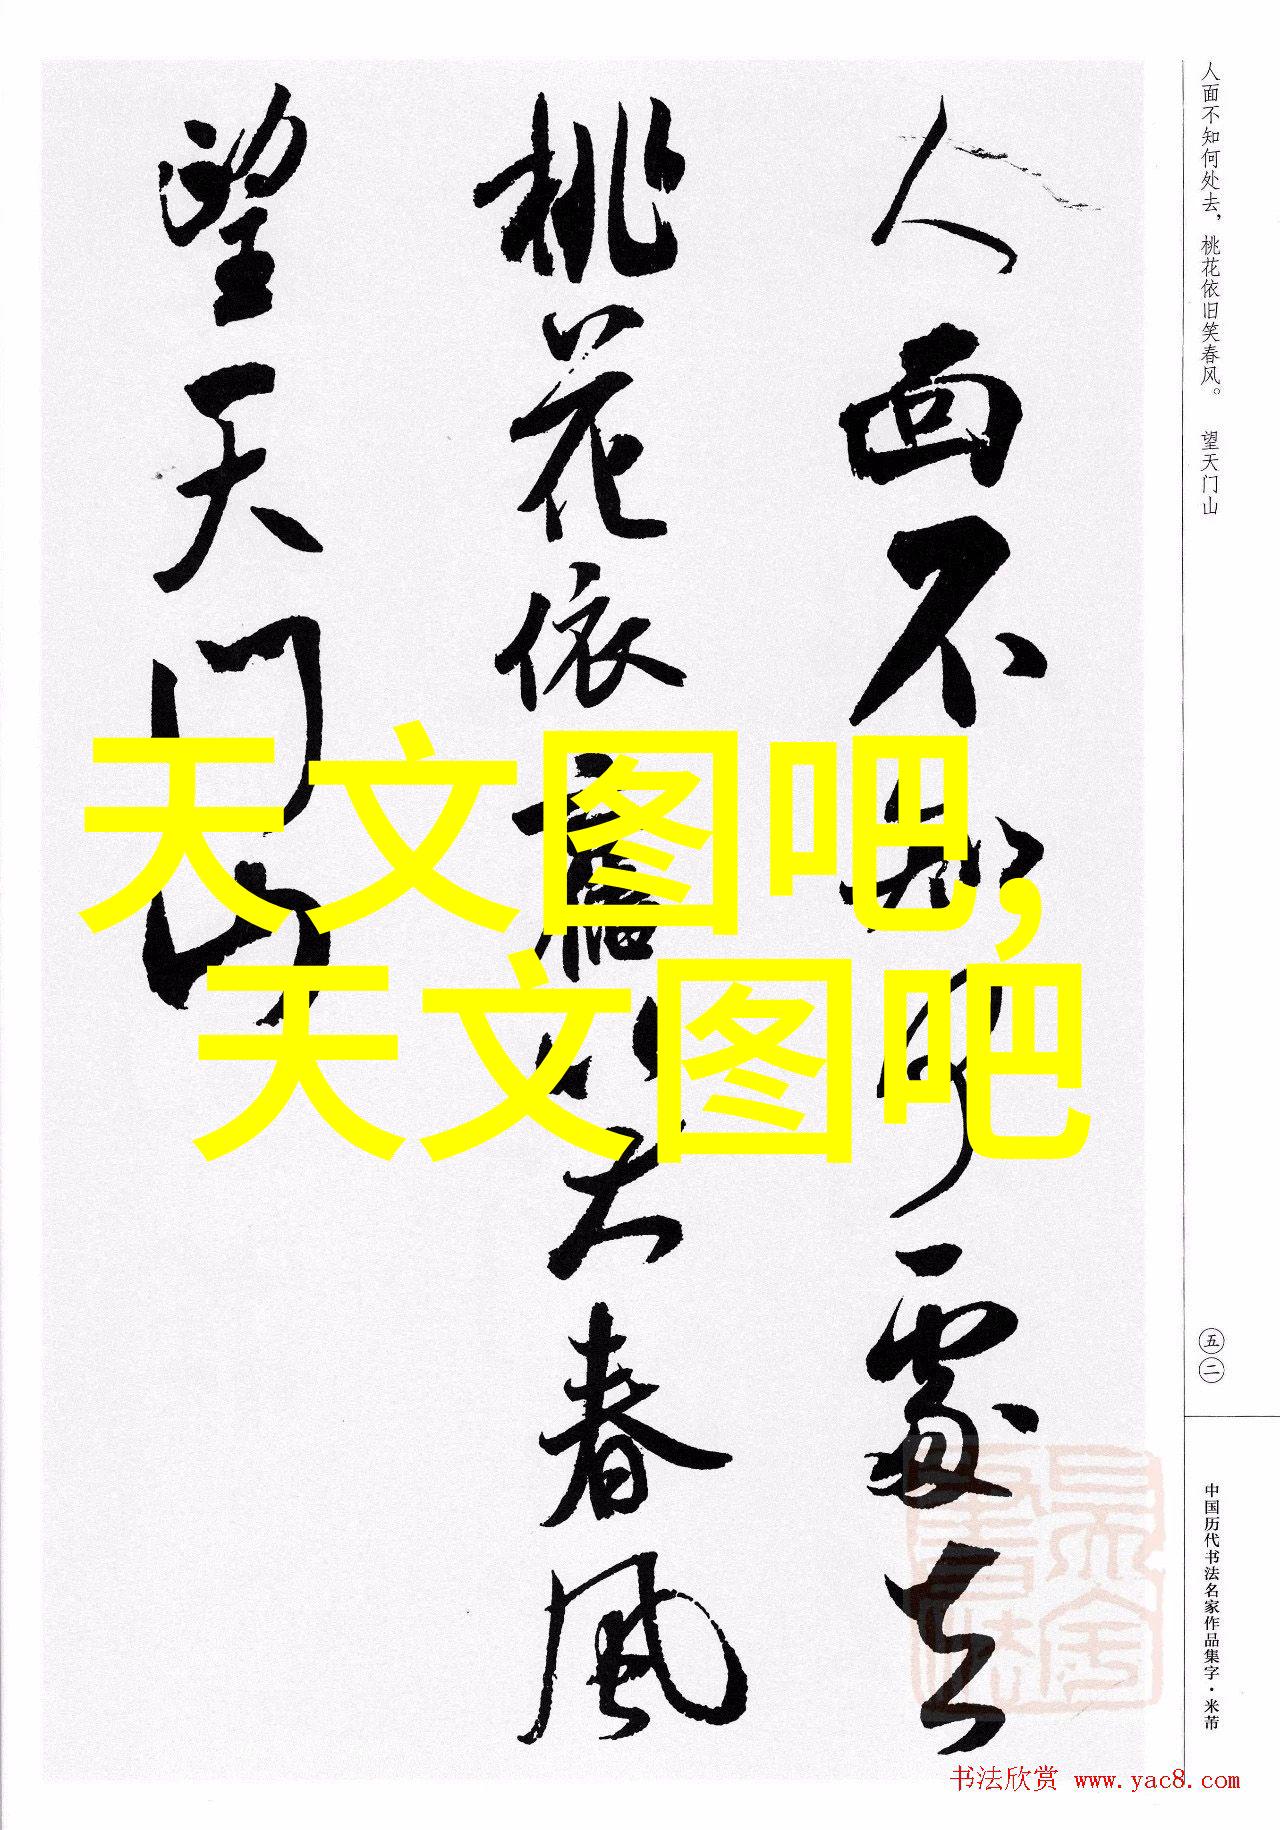 人面不知何處去
桃花依舊笑春風
望天门山
天文图吧,
天文图吧
人面不知何处去，桃花依旧笑春风。 望天门山
五二
中国历代书法名家作品集字·米芾
书法欣赏 www.yac8.com